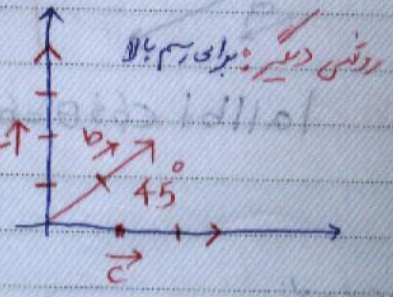 روشی دیگر: برای رسم بالا
b
45°
c